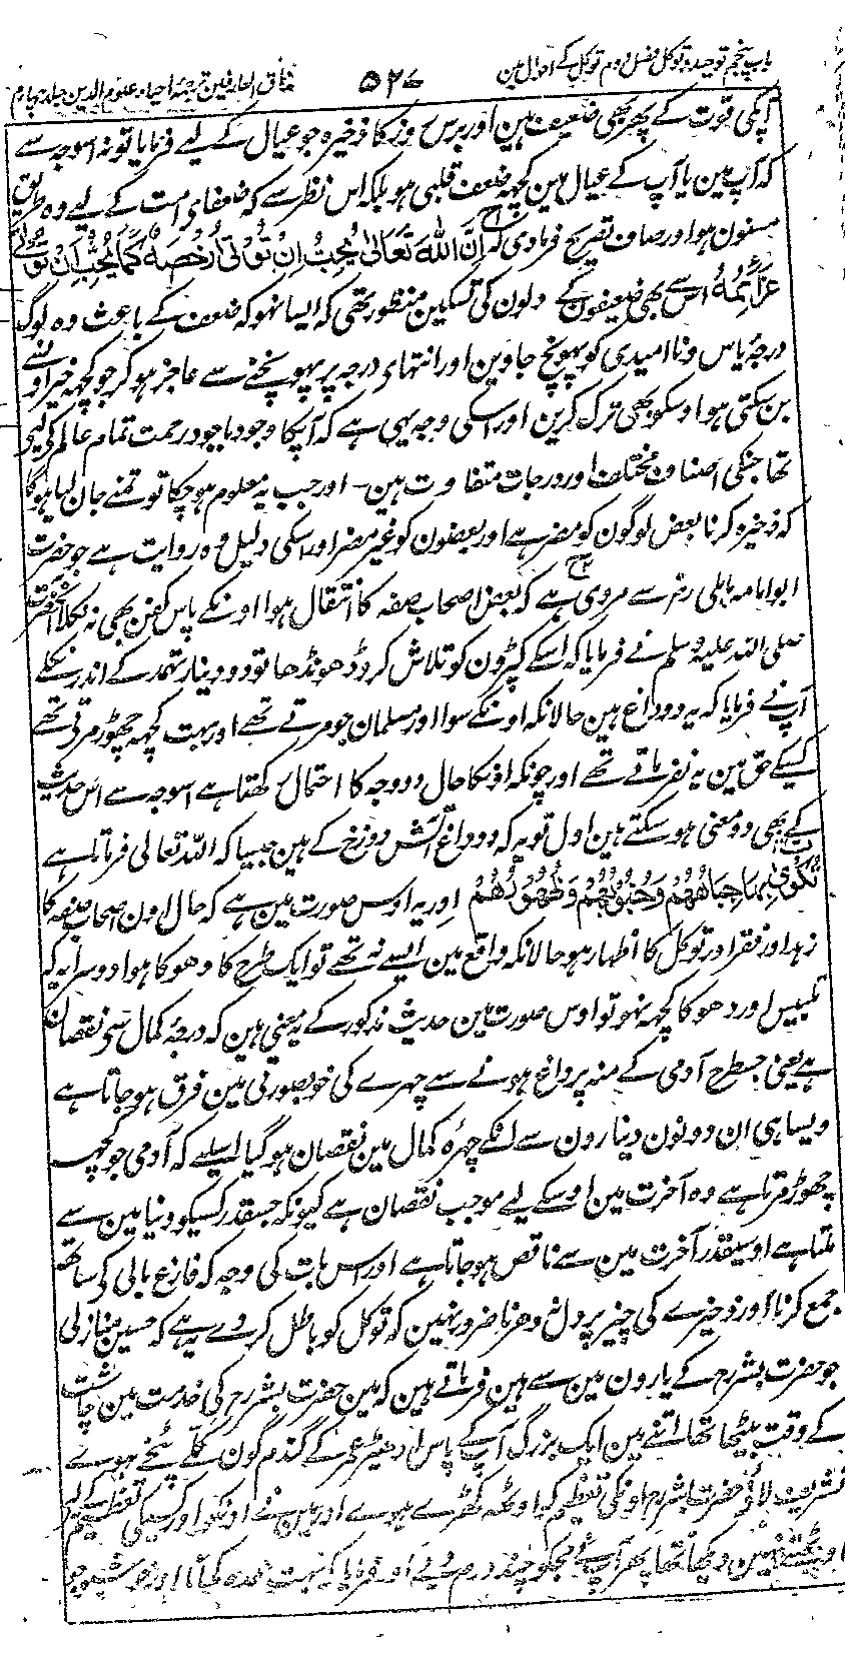 باب پنجم توحید و توکل فصل دوم توکل کے احوال مین ۵۲۷ مذاق العارفین ترجمہ احیاء علوم الدین جلد چہارم
آپکی قوت کے پھر بھی ضعیف ہین اور برس روز کا ذخیرہ جو عیال کے لیے فرمایا تو نہ اسوجہ سے
کہ آپ مین یا آپ کے عیال مین کچھہ ضعف قلبی ہو بلکہ اس نظر سے کہ ضعفای امت کے لیے وہ طریق
مسنون ہو اور صاف تصریح فرمادی کہ اِنَّ اللہَ تَعَالیٰ یُحِبُّ اِنْ تُؤْتیٰ رُخَصُہٗ کَمَا یُحِبُّ اَنْ تُؤْتیٰ
عَزَائِمُہٗ اس سے بھی ضعیفون کے دلون کی تسکین منظور تھی کہ ایسا نہو کہ ضعف کے باعث وہ لوگ
درجۂ یاس و ناامیدی کو پہونچ جاوین اور انتہای درجہ پر پہونچنے سے عاجز ہو کر جو کچھہ خیر اونسے
بن سکتی ہو اوسکو بھی ترک کرین اور اسکی وجہ یہی ہے کہ آپکا وجود باجود رحمت تمام عالم کے لیے
تھا جنکی اصناف مختلف اور درجات متفاوت ہین - اور جب یہ معلوم ہو چکا تو تمنے جان لیا ہوگا
کہ ذخیرہ کرنا بعض لوگون کو مضر ہے اور بعضون کو غیر مضر اور اسکی دلیل وہ روایت ہے جو حضرت
ابو امامہ باہلی رض سے مروی ہے کہ بعض اصحاب صفہ کا انتقال ہوا اونکے پاس کفن بھی نہ نکلا آنحضرت
صلی اللہ علیہ وسلم نے فرمایا کہ اسکے کپڑون کو تلاش کرو ڈھونڈھا تو دو دینار تہمد کے اندر نکلے
آپ نے فرمایا کہ یہ دو داغ ہین حالانکہ اونکے سوا اور مسلمان جو مرتے تھے اور بہت کچھہ چھوڑ مرتے تھے
کسیکے حق مین یہ نفرماتے تھے اور چونکہ اونکا حال دو وجہ کا احتمال رکھتا ہے اسوجہ سے اس حدیث
کے بھی دو معنی ہو سکتے ہین اول تو یہ کہ دو داغ آتش دوزخ کے ہین جیسا کہ اللہ تعالی فرماتا ہے
تُکْوٰی بِہَا جِبَاہُہُمْ وَجُنُوْبُہُمْ وَظُہُوْرُہُمْ اور یہ اوس صورت مین ہے کہ حال اون اصحاب صفہ کا
زہد اور فقر اور توکل کا اظہار ہو حالانکہ واقع مین ایسے نہ تھے تو ایک طرح کا دھوکا ہوا دوسرا یہ کہ
تلبیس اور دھوکا کچھہ نہو تو اوس صورت مین حدیث مذکور کے یہ معنی ہین کہ درجۂ کمال سے نقصان
ہے یعنی جسطرح آدمی کے منہ پر داغ ہونے سے چہرے کی خوبصورتی مین فرق ہو جاتا ہے
ویسا ہی ان دونون دینارون سے اونکے چہرۂ کمال مین نقصان ہو گیا اسلیے کہ آدمی جو کچھہ
چھوڑ مرتا ہے وہ آخرت مین اوسکے لیے موجب نقصان ہے کیونکہ جسقدر کسیکو دنیا مین سے
ملتا ہے اوسیقدر آخرت مین سے ناقص ہو جاتا ہے اور اس بات کی وجہ کہ فارغ بالی کے ساتھ
جمع کرنا اور ذخیرے کی چیز پر دل نہ دھرنا ضرور نہین کہ توکل کو باطل کر دے یہ ہے کہ حسین مغازلی
جو حضرت بشر رح کے یارون مین سے ہین فرماتے ہین کہ مین حضرت بشر رح کی خدمت مین چاشت
کے وقت بیٹھا تھا اتنے مین ایک بزرگ آپ کے پاس ادھیڑ عمر کے گندم گون گلے پچے ہوے
تشریف لائے حضرت بشر رح اونکی تعظیم کے لیے اوٹھہ کھڑے ہوے اور مین نے اونکو اور کسیکی تعظیم کے لیے
اوٹھتے نہین دیکھا تھا پھر آپ نے مجکو چند درم دیے اور فرمایا کہ بہت عمدہ کھانا اور